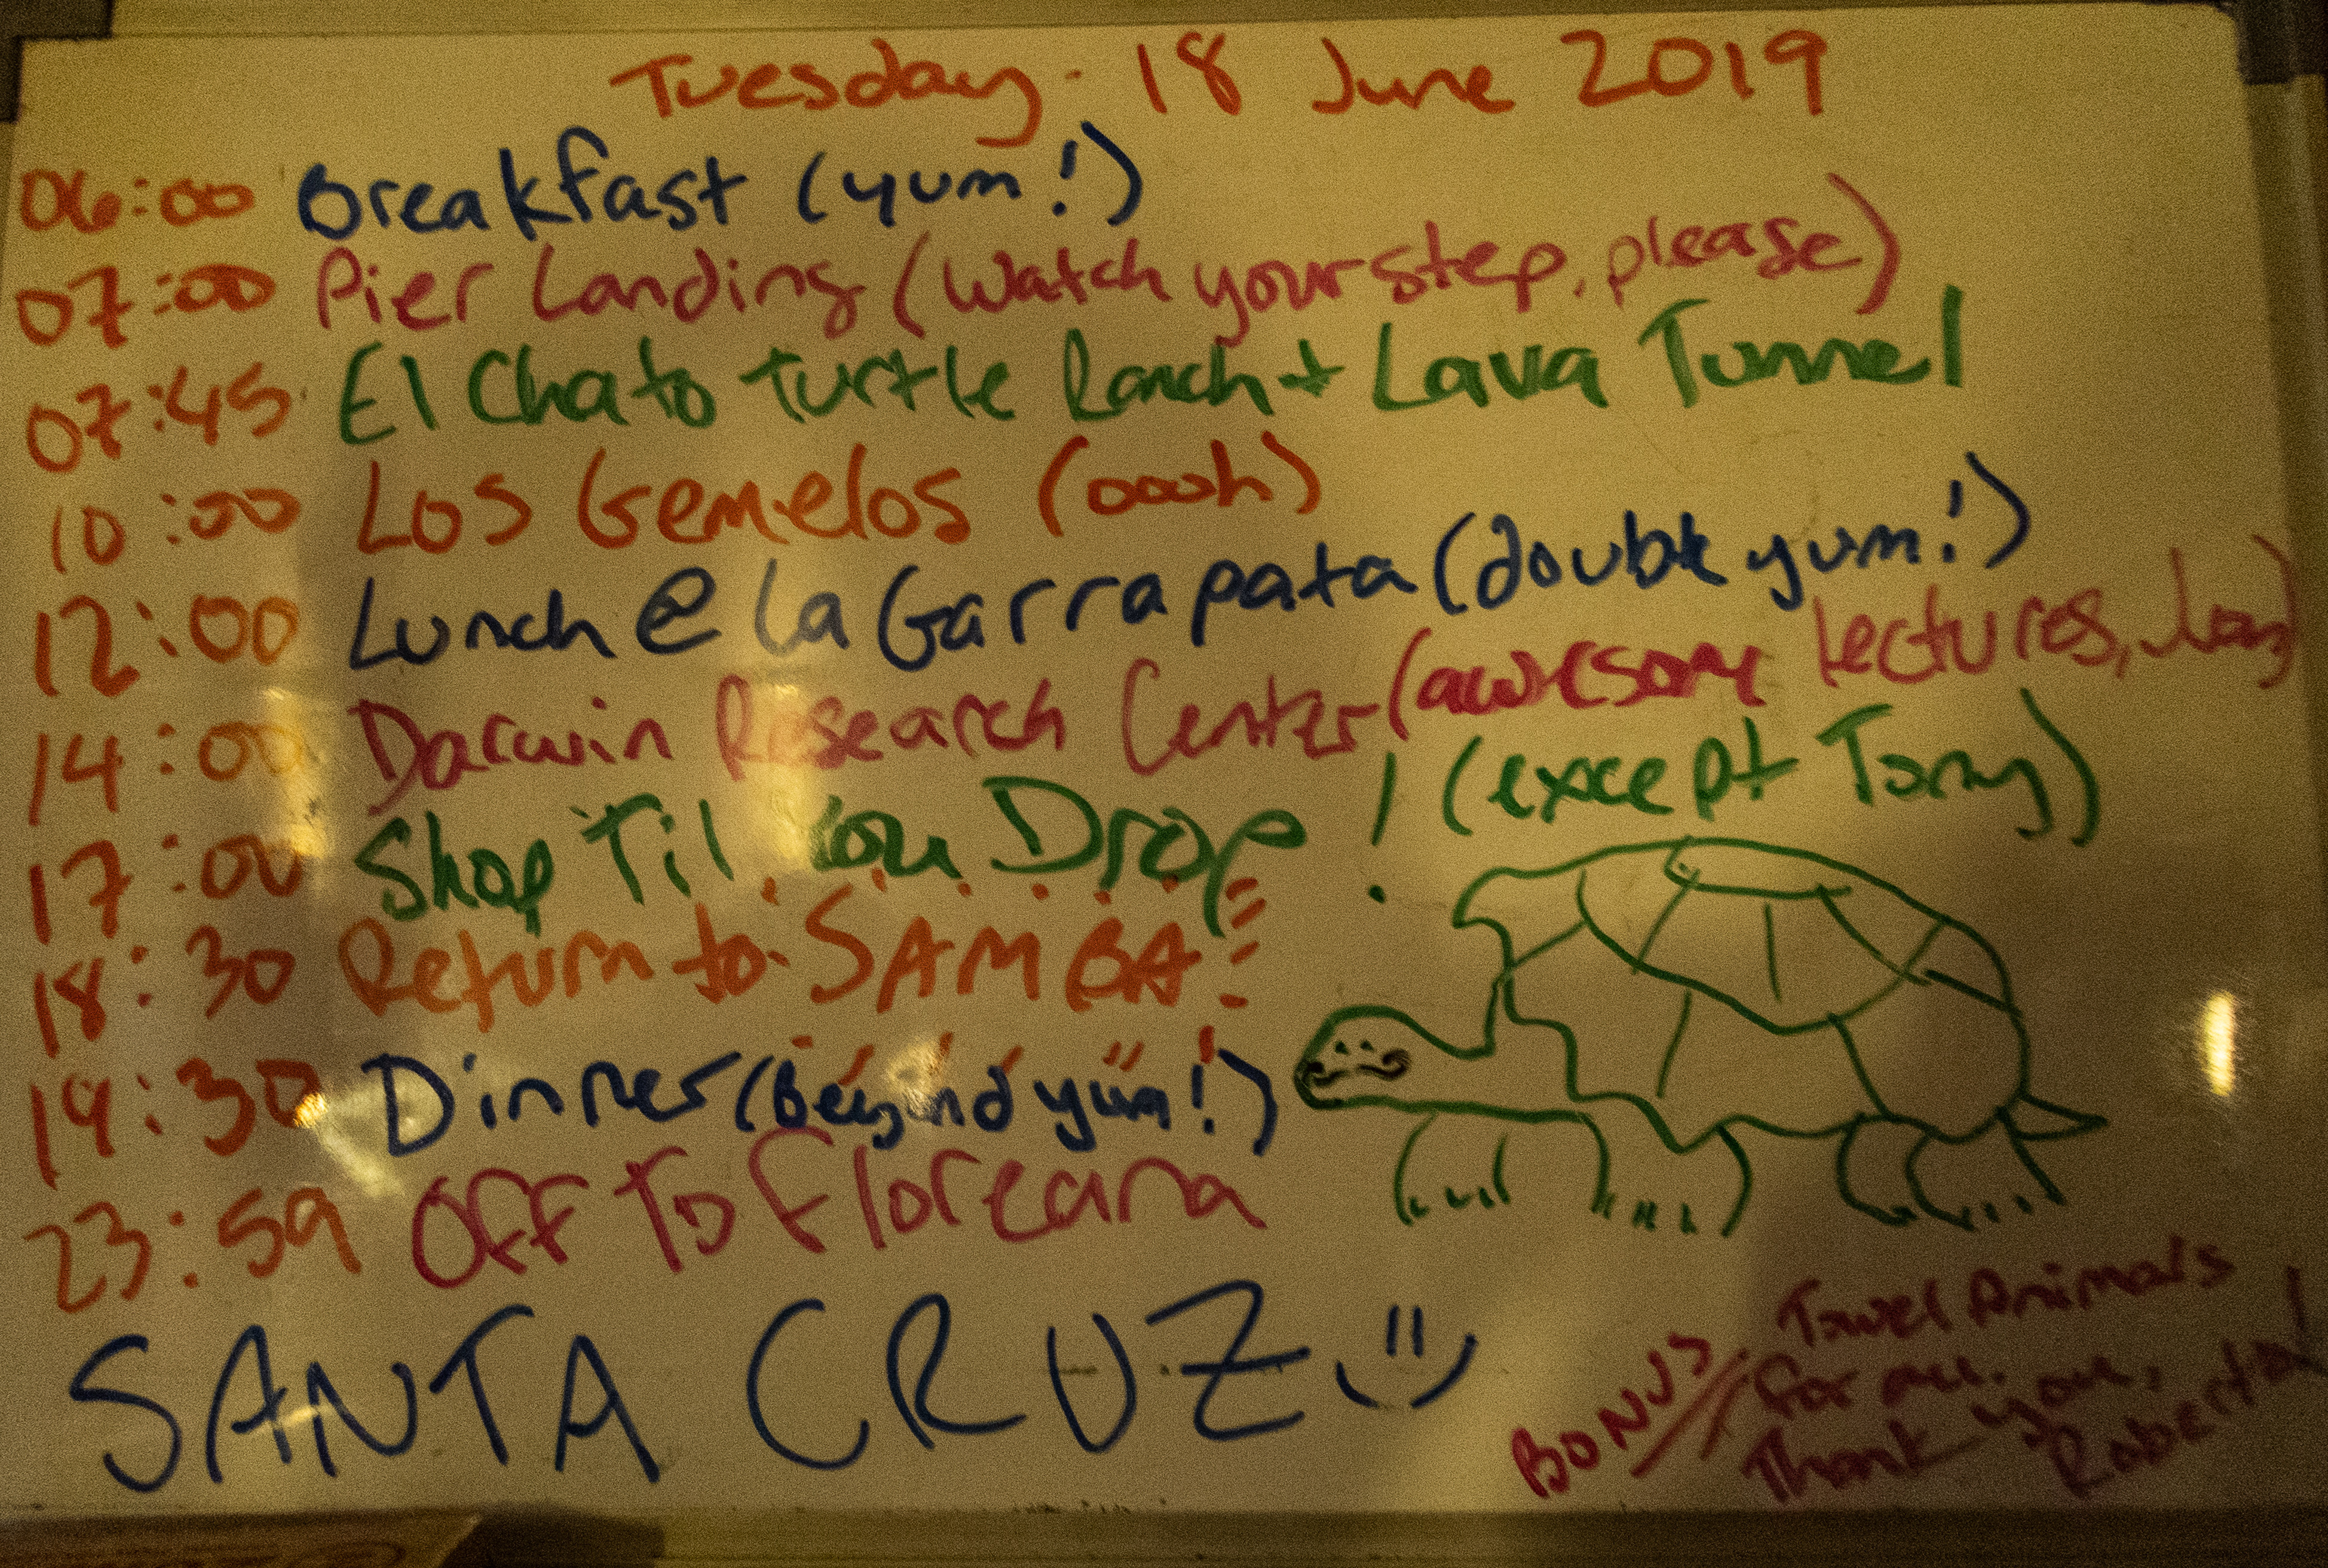 Tuesday - 18 June 2019
06:00 Breakfast (yum!)
07:00 Pier Landing (watch your step, please)
07:45 El Chato Turtle Ranch + Lava Tunnel
10:00 Los Gemelos (oooh)
12:00 Lunch @ La Garrapata (double yum!)
14:00 Darwin Research Center (awesome lectures,
17:00 Shop Til You Drop! (except Tony)
18:30 Return to SAMBA
19:30 Dinner (beyond yum!)
23:59 Off To Floreana
SANTA CRUZ
BONUS
Towel Animals
for all.
Thank you,
Roberto!